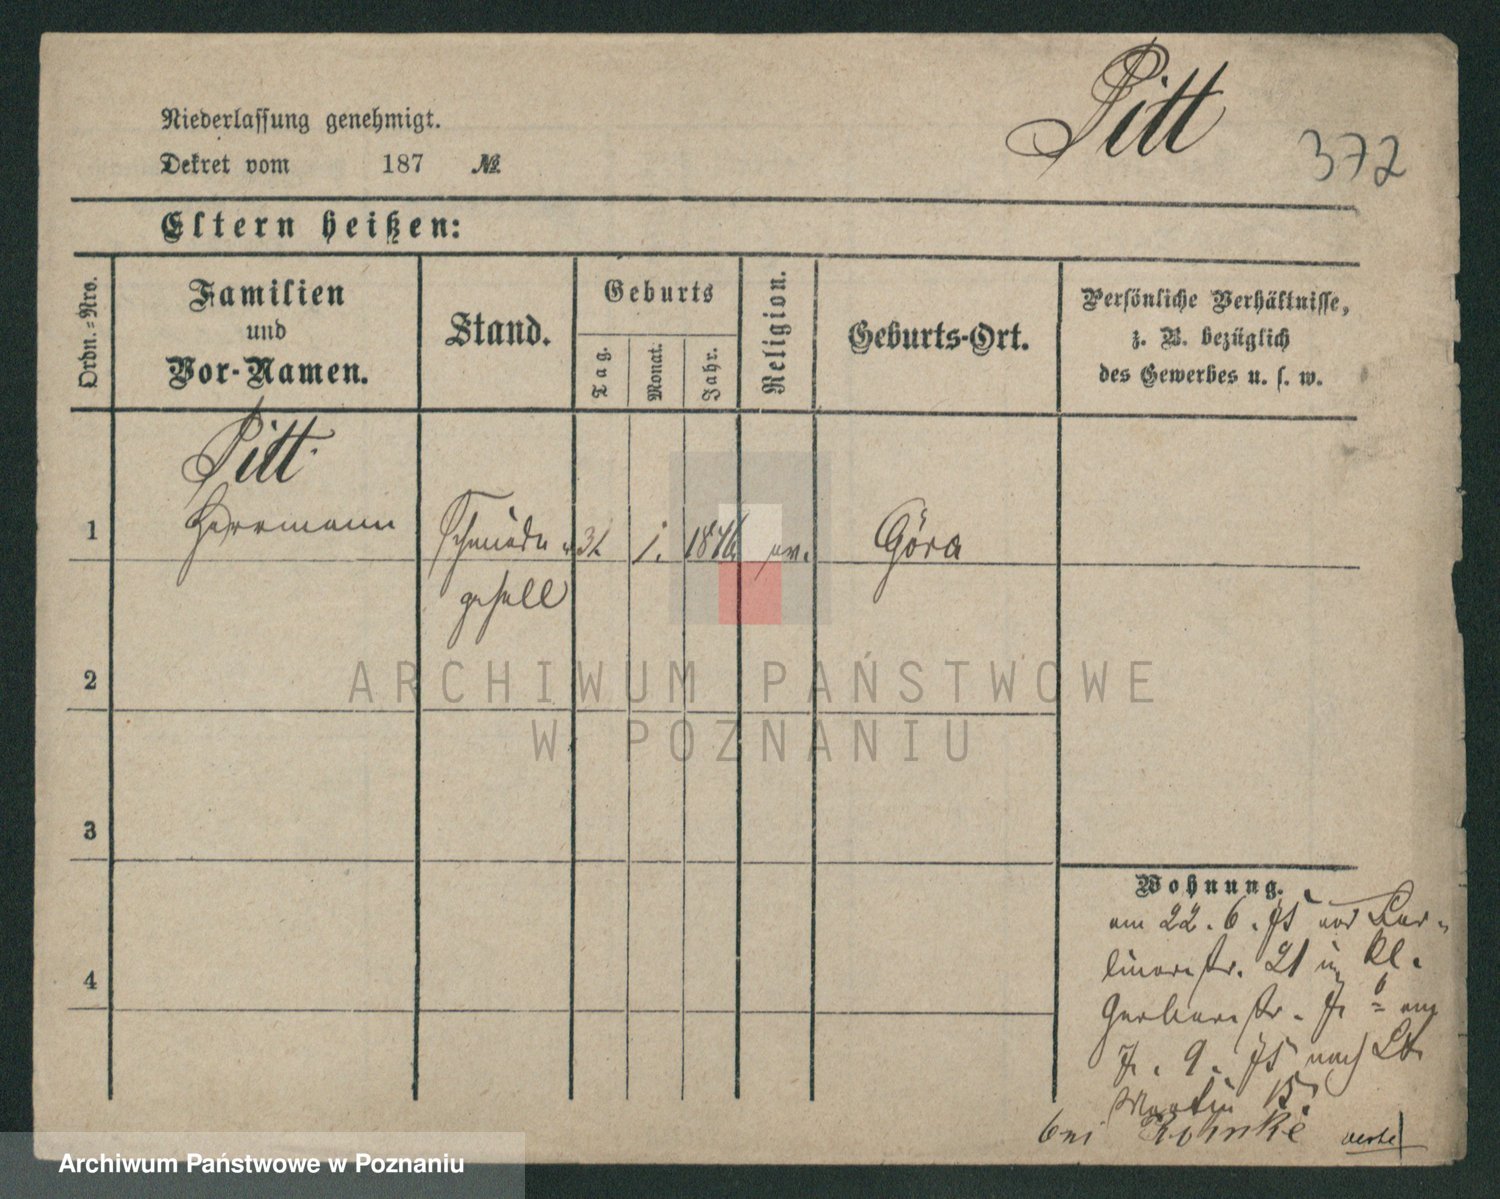 Pitt
372
Niederlassung genehmigt.
Dekret vom 187 №
Eltern heißen:
Ordn.-Nro.
Familien
und
Vor-Namen.
Stand.
Geburts
Tag.
Monat.
Jahr.
Religion.
Geburts-Ort.
Persönliche Verhältnisse,
z. B. bezüglich
des Gewerbes u. s. w.
1
Pitt
Herrmann
Schmiede
gesell
31
1.
1846
ev.
Góra
2
3
4
Wohnung.
am 22. 6. 75 von Ber-
linerstr. 21 in kl.
Gerberstr. 7 am
7. 9. 75 nach St.
Martin
bei
ARCHIWUM PAŃSTWOWE
W POZNANIU
Archiwum Państwowe w Poznaniu